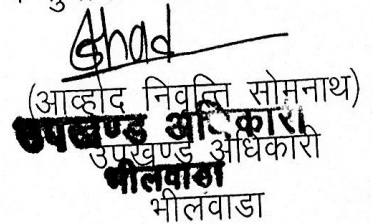 (आव्होद निवृत्ति सोमनाथ)
उपखण्ड अधिकारी
उपखण्ड अधिकारी
भीलवाडा
भीलवाडा